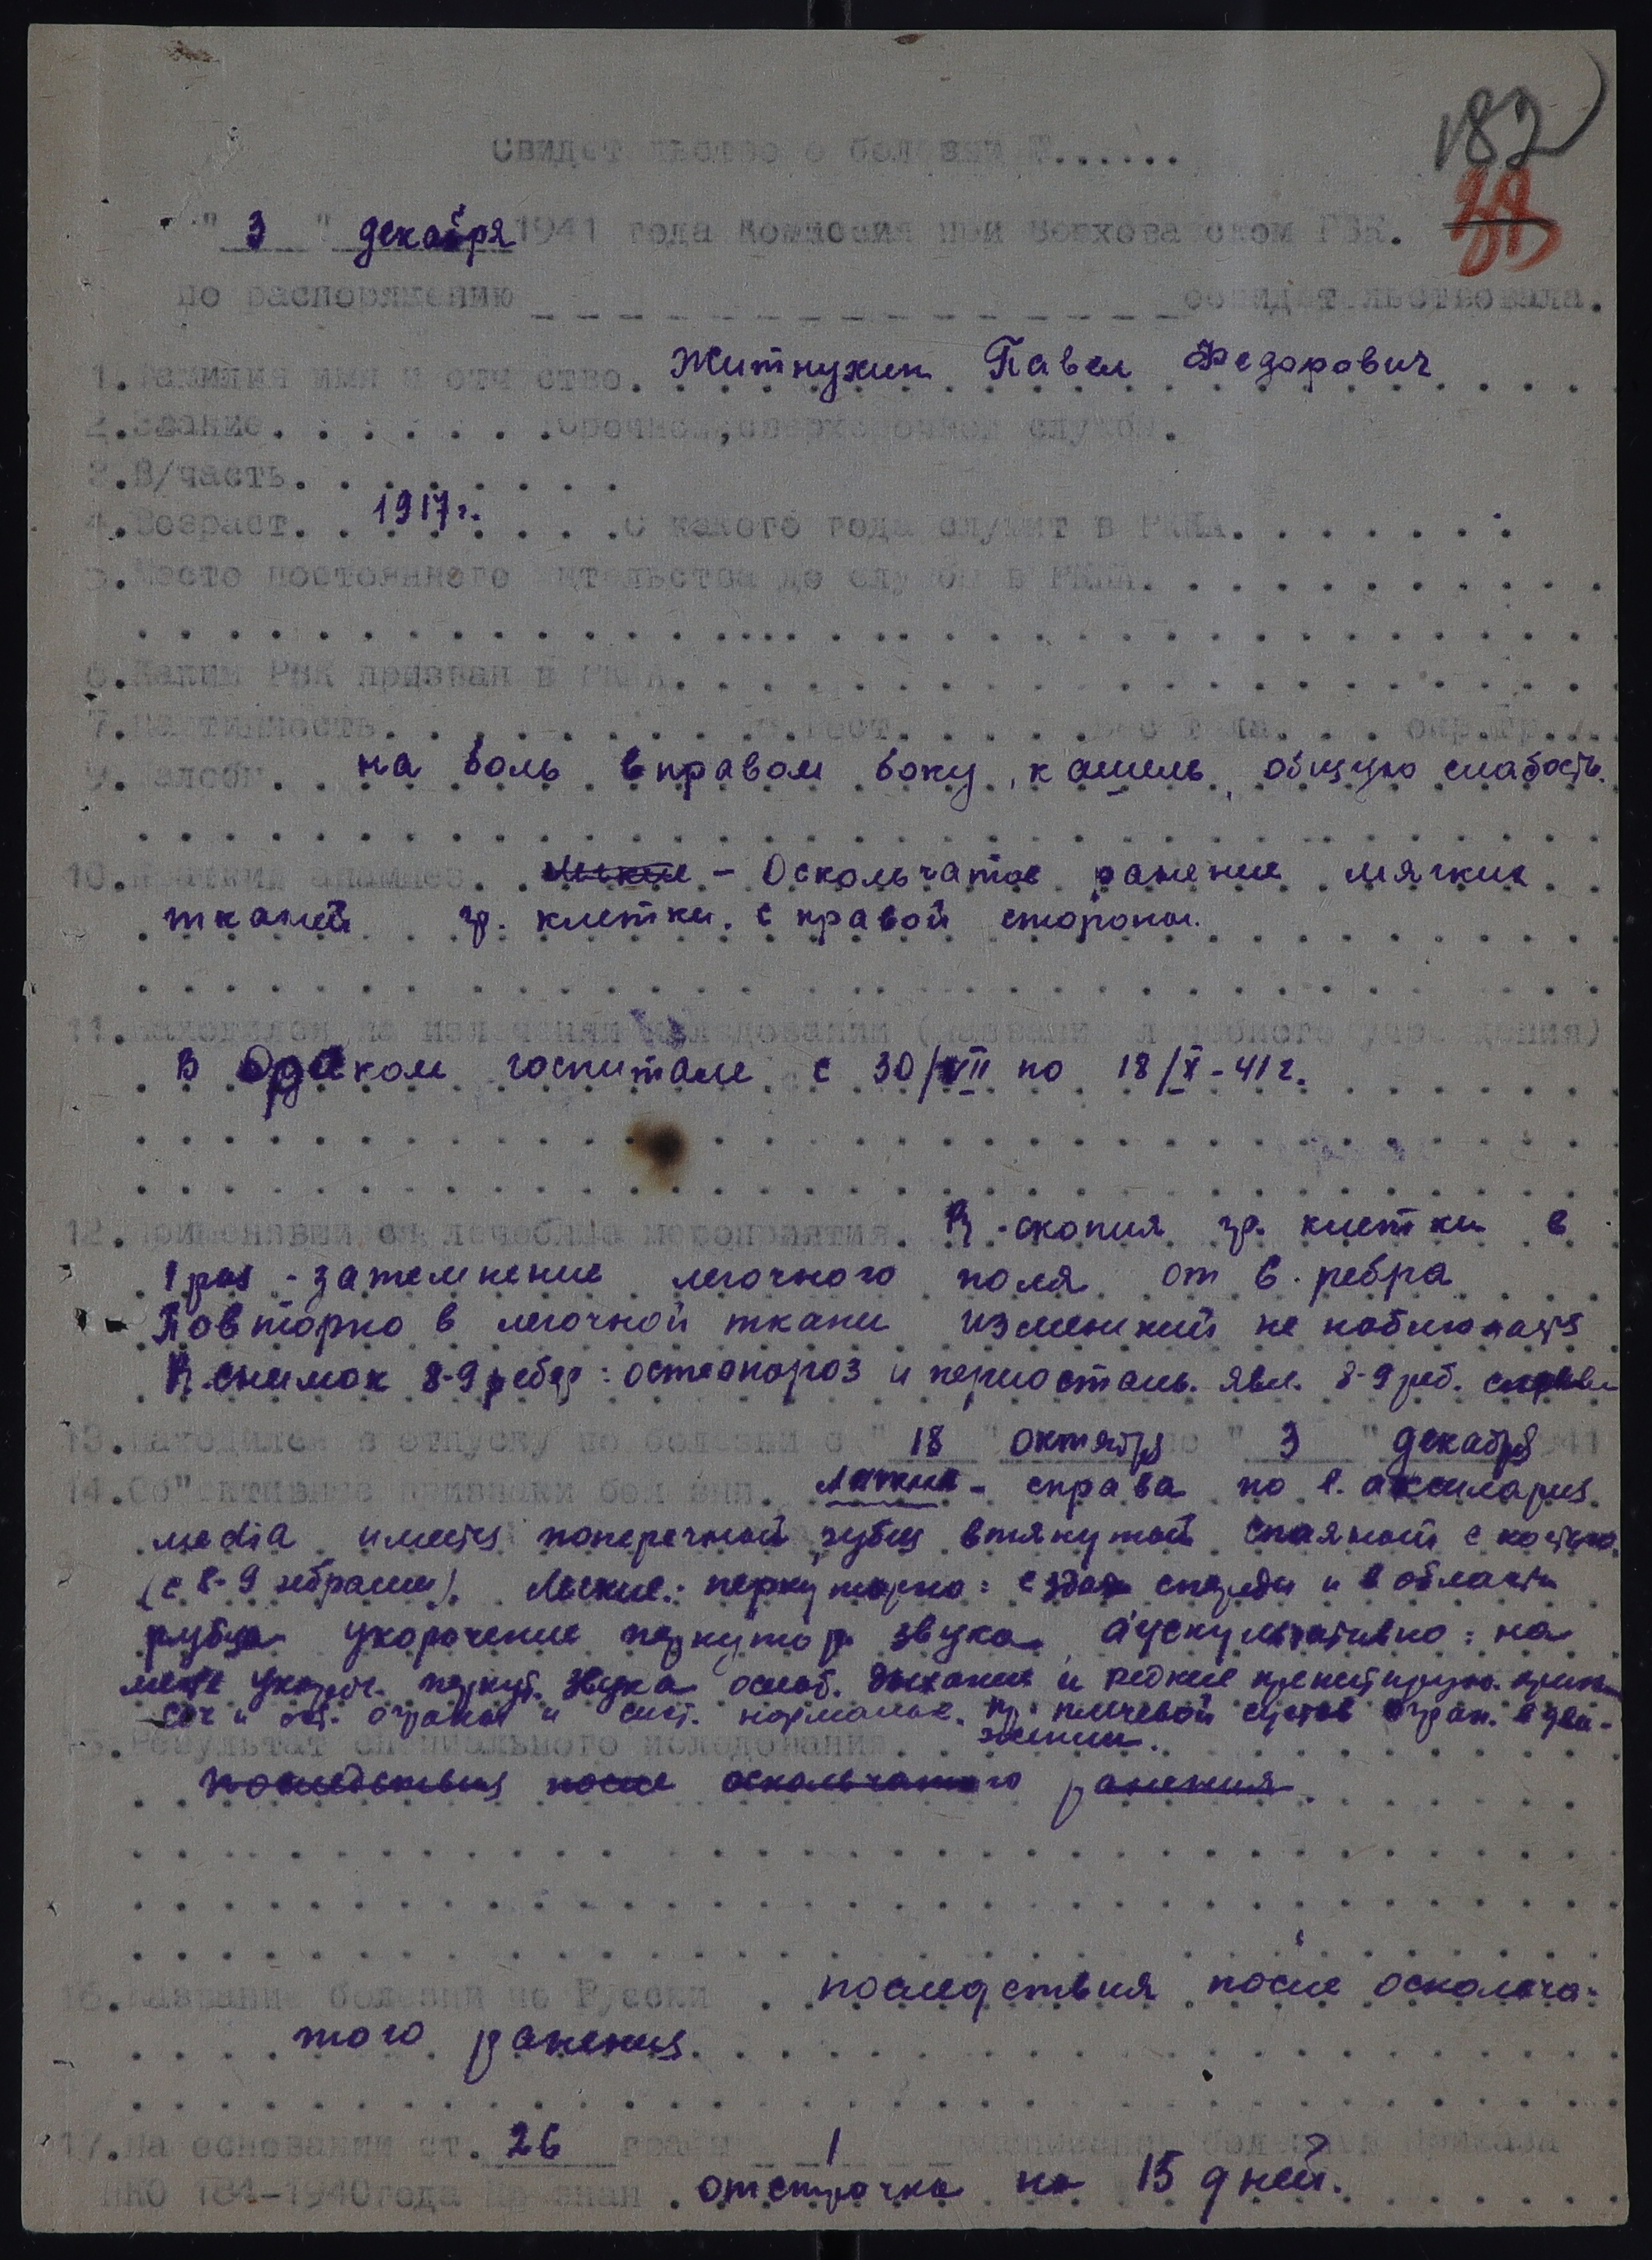 182
Свидетельство о болезни №......
"3" декабря 1941 года Комиссия при Верхова ском РВК.
по распоряжению _ _ _ _ _ _ _ _ _ _ _ _ _ _ освидетельствовала.
1. Фамилия имя и отчество. Житнухин Павел Федорович
2. Звание. . . . . . . срочной, сверхсрочной службы.
3. В/часть. . . . . . . .
4. Возраст. 1917 г. с какого года служит в РККА. . . . . . .
5. Место постоянного жительства до службы в РККА. . . . . . . . . .
6. Каким РВК призван в РККА. . . . . . . . . .
7. Партийность. . . . . . . . 8. Рост. . . . . вес тела. . . окр. гр. . .
9. Жалобы. на боль в правом боку, кашель, общую слабость.
10. Краткий анамнез. легкие – Оскольчатое ранение мягких
тканей гр. клетки. с правой стороны.
11. Находился на излечении, исследовании (название лечебного учреждения)
В госпитале с 30/VII по 18/X-41 г.
12. Применявшиеся лечебные мероприятия. R-скопия гр. клетки в
1 раз - затемнение легочного поля от 6. ребра
Повторно в легочной ткани изменений не наблюдается
R. снимок 8-9 ребер: остеопороз и периостальн. явл. 8-9 реб. справа
13. Находился в отпуску по болезни с "18" октября по "3" декабря 1941
14. Об"ективные признаки болезни. справа по l. аксиларис
media имеется поперечный рубец втянутый спаяный с костью
(с 8-9 ребрами). Легкие: перкуторно: спереди и в области
рубца укорочение перкутор. звука, аускультативно: на
месте укороч. перкут. звука ослаб. дыхание и редкие
и органы и сист. нормальн. Пр. плечевой сустав огран. в дви-
жении.
15. Результат специального исследования.
последствия после оскольчатого ранения.
16. Название болезни по Русски. последствия после оскольча-
того ранения.
17. На основании ст. 26 графы 1 расписания болезней приказа
НКО 184-1940 года Признан. отсрочка на 15 дней.